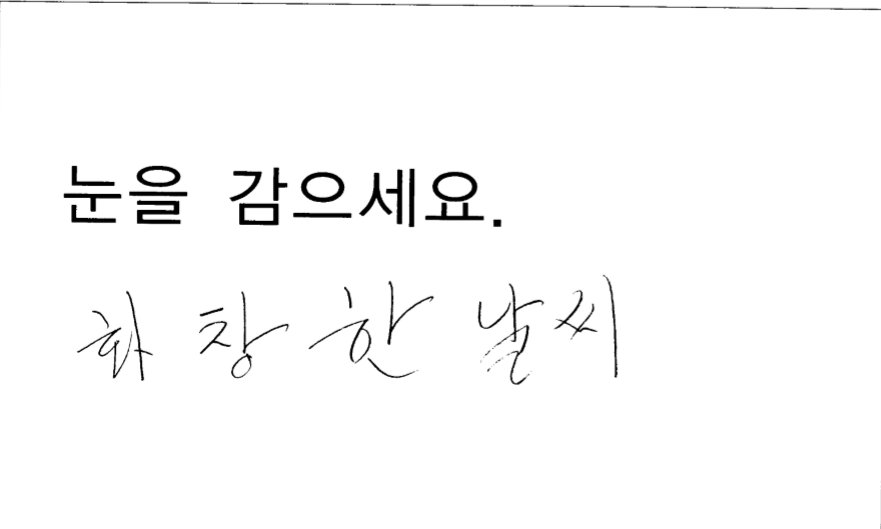 눈을 감으세요.
화창한 날씨